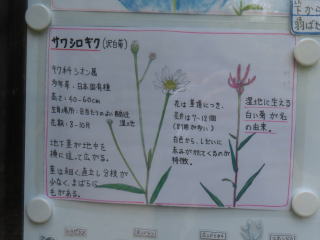 サワシロギク(沢白菊)
キク科シオン属
多年草・日本固有種
高さ:40-60cm
生育場所:日当たりのよい酸性
湿地
花期:8-10月
地下茎が地中を
横に這って広がる。
茎は細く直立し分枝が
少なく、まばらに
毛がある。
花は茎頂につき、
花弁は7~12個
白色から、しだいに
赤みがさしてくるのが
特徴。
湿地に生える
白い菊が名
の由来。
下から